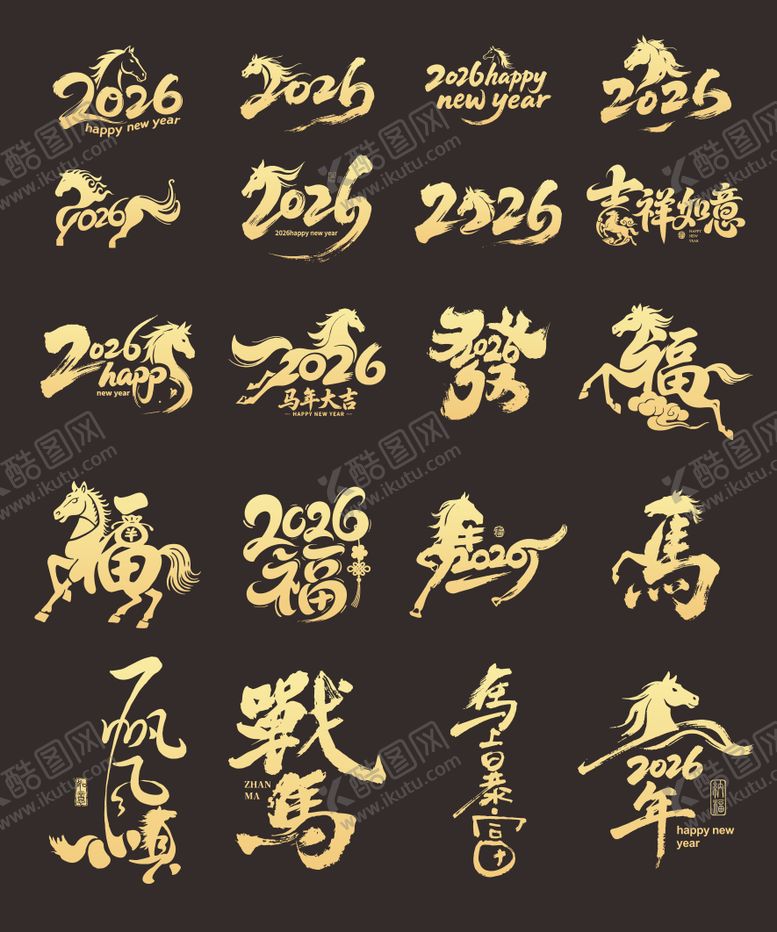 2026
happy new year
2026
2026happy
new year
2026
2026
2026
2026happy new year
2026
吉祥如意
HAPPY
NEW
YEAR
2026
happy
new year
2026
马年大吉
HAPPY NEW YEAR
發
2026
福
福
2026
福
2026
馬
一帆风順
戰馬
ZHAN
MA
馬上暴富
2026
年
纳福
happy new
year
酷图网
www.ikutu.com